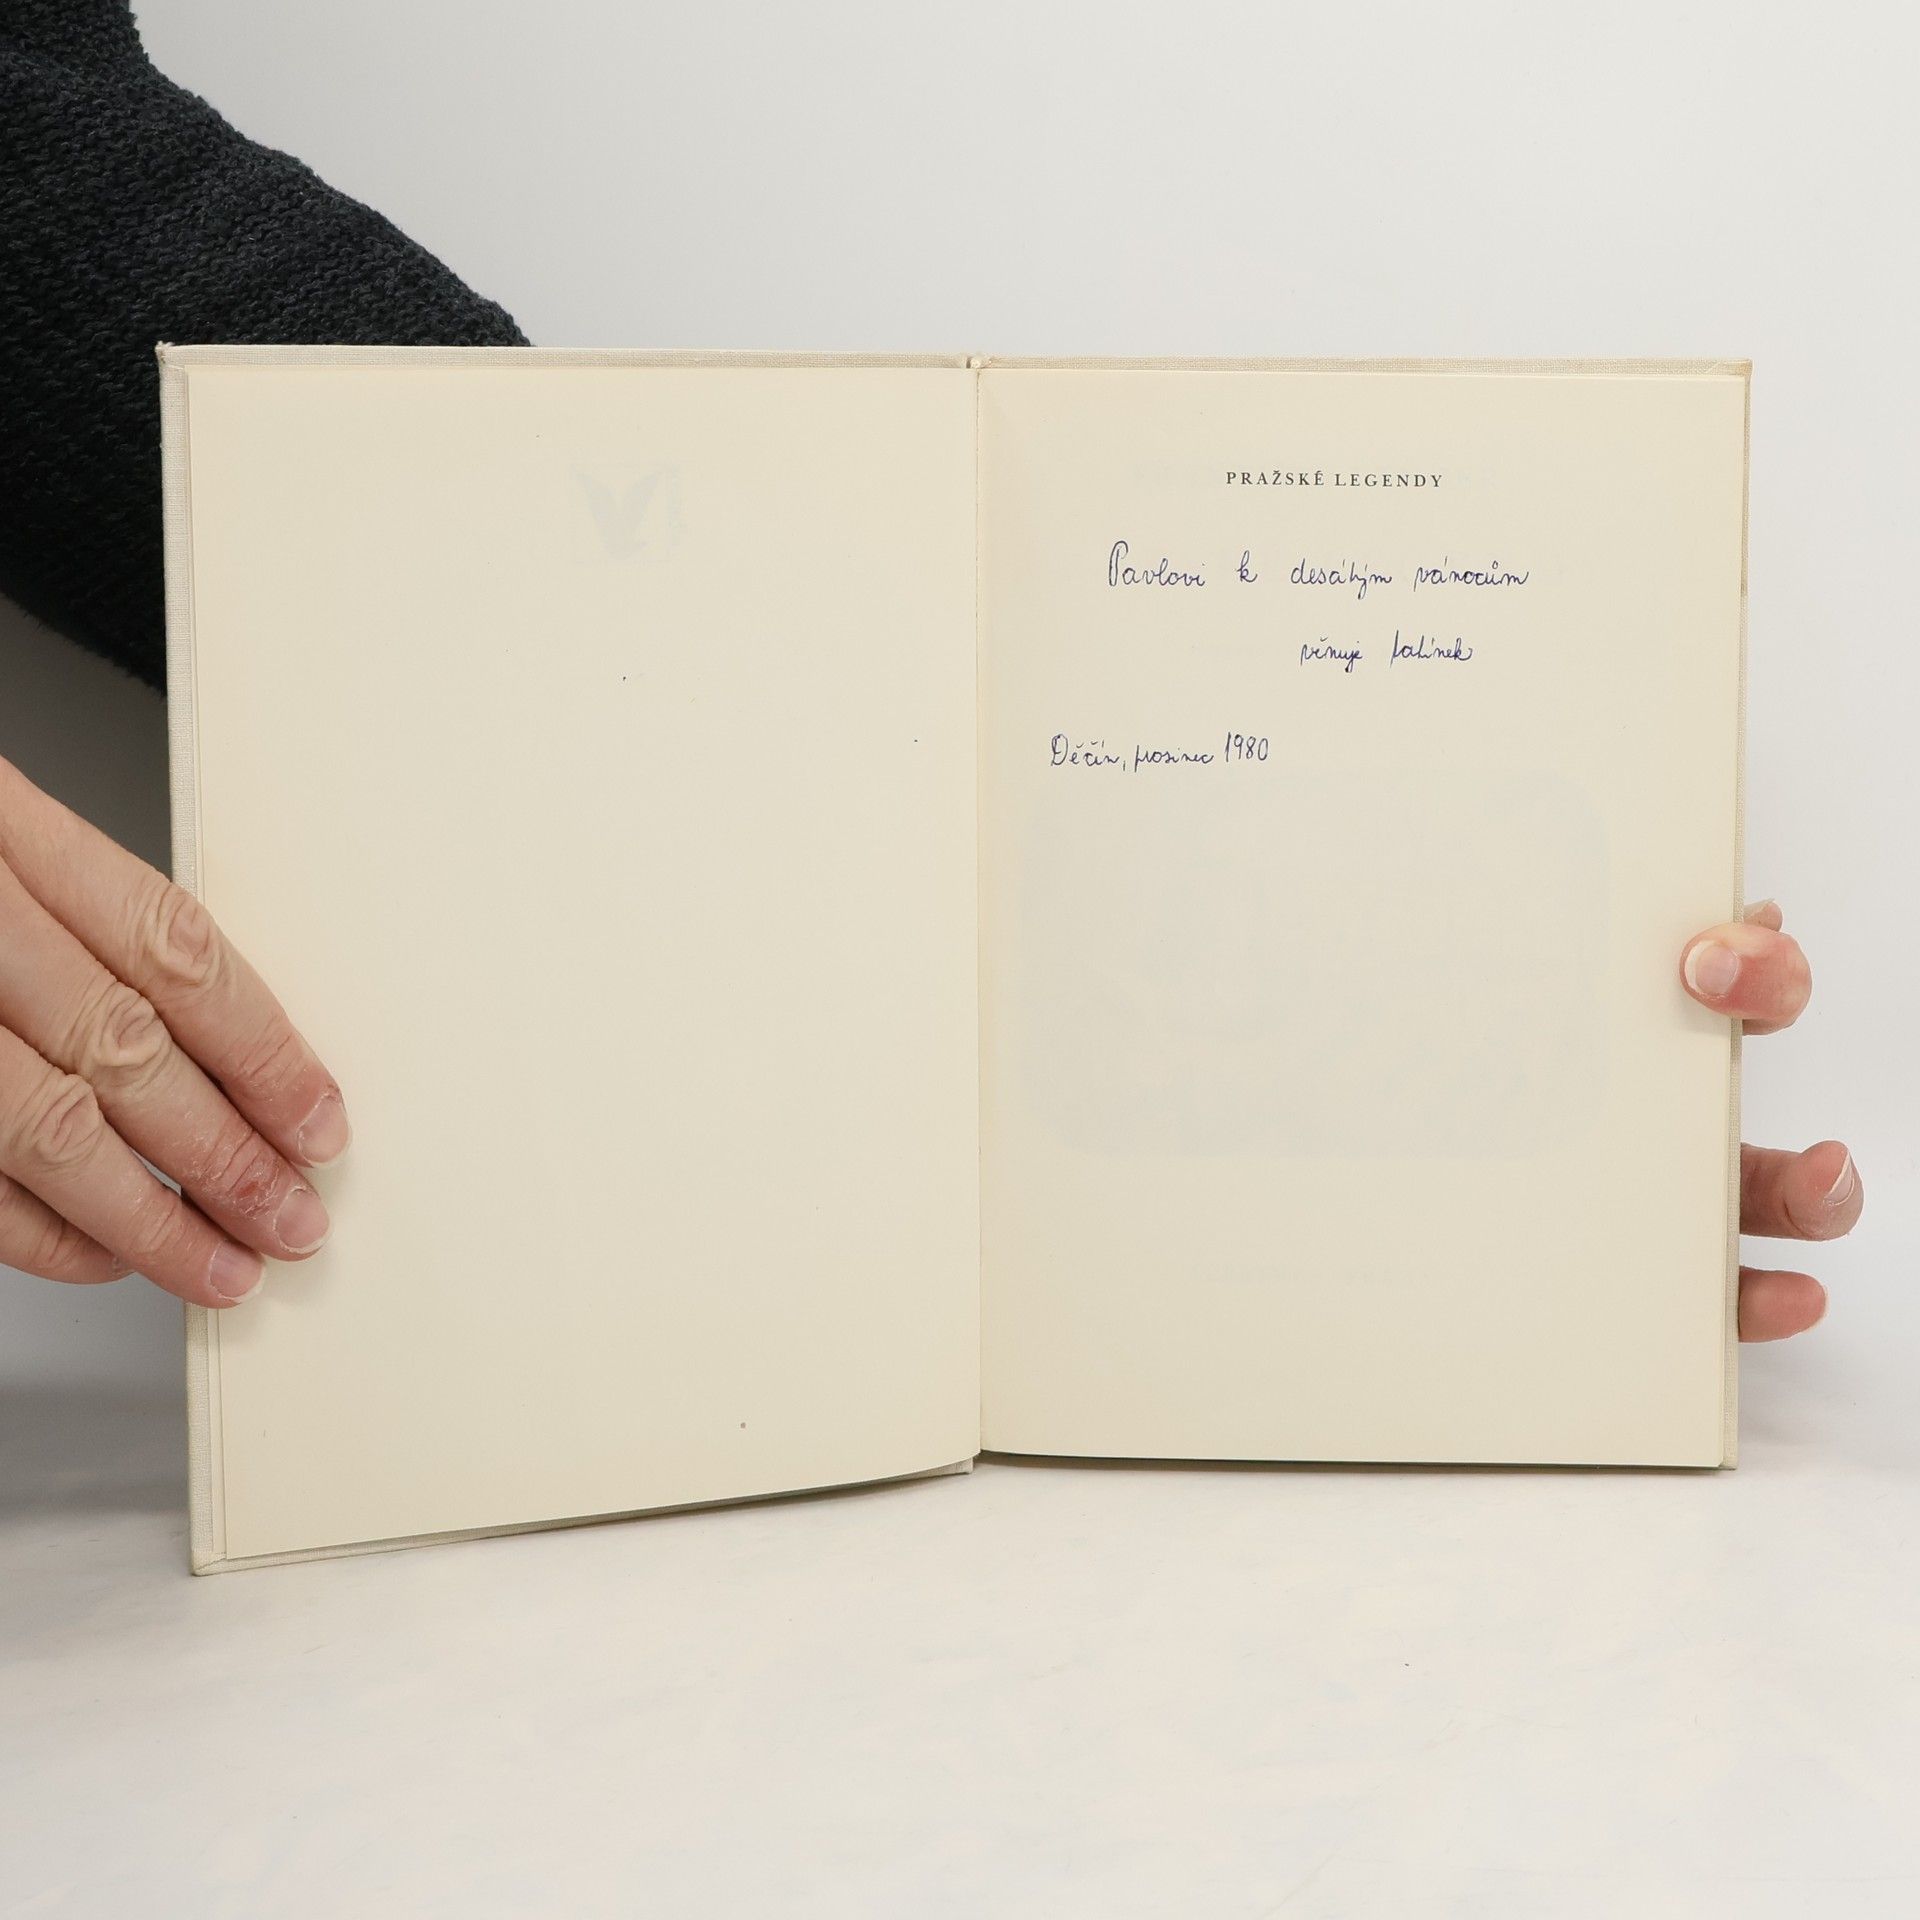 PRAŽSKÉ LEGENDY
Pavlovi k desátým vánocům
věnuje tatínek
Děčín, prosinec 1980